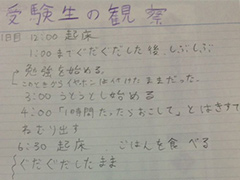 受験生の観察
1日目 12:00 起床
1:00までぐだぐだした後、しぶしぶ
勉強を始める。
このときからイヤホンは付けたままだった。
3:00 うとうとし始める
4:00「1時間たったらおこして」とはきすて
ねむり出す
6:30 起床 ごはんを食べる
ぐだぐだしたまま